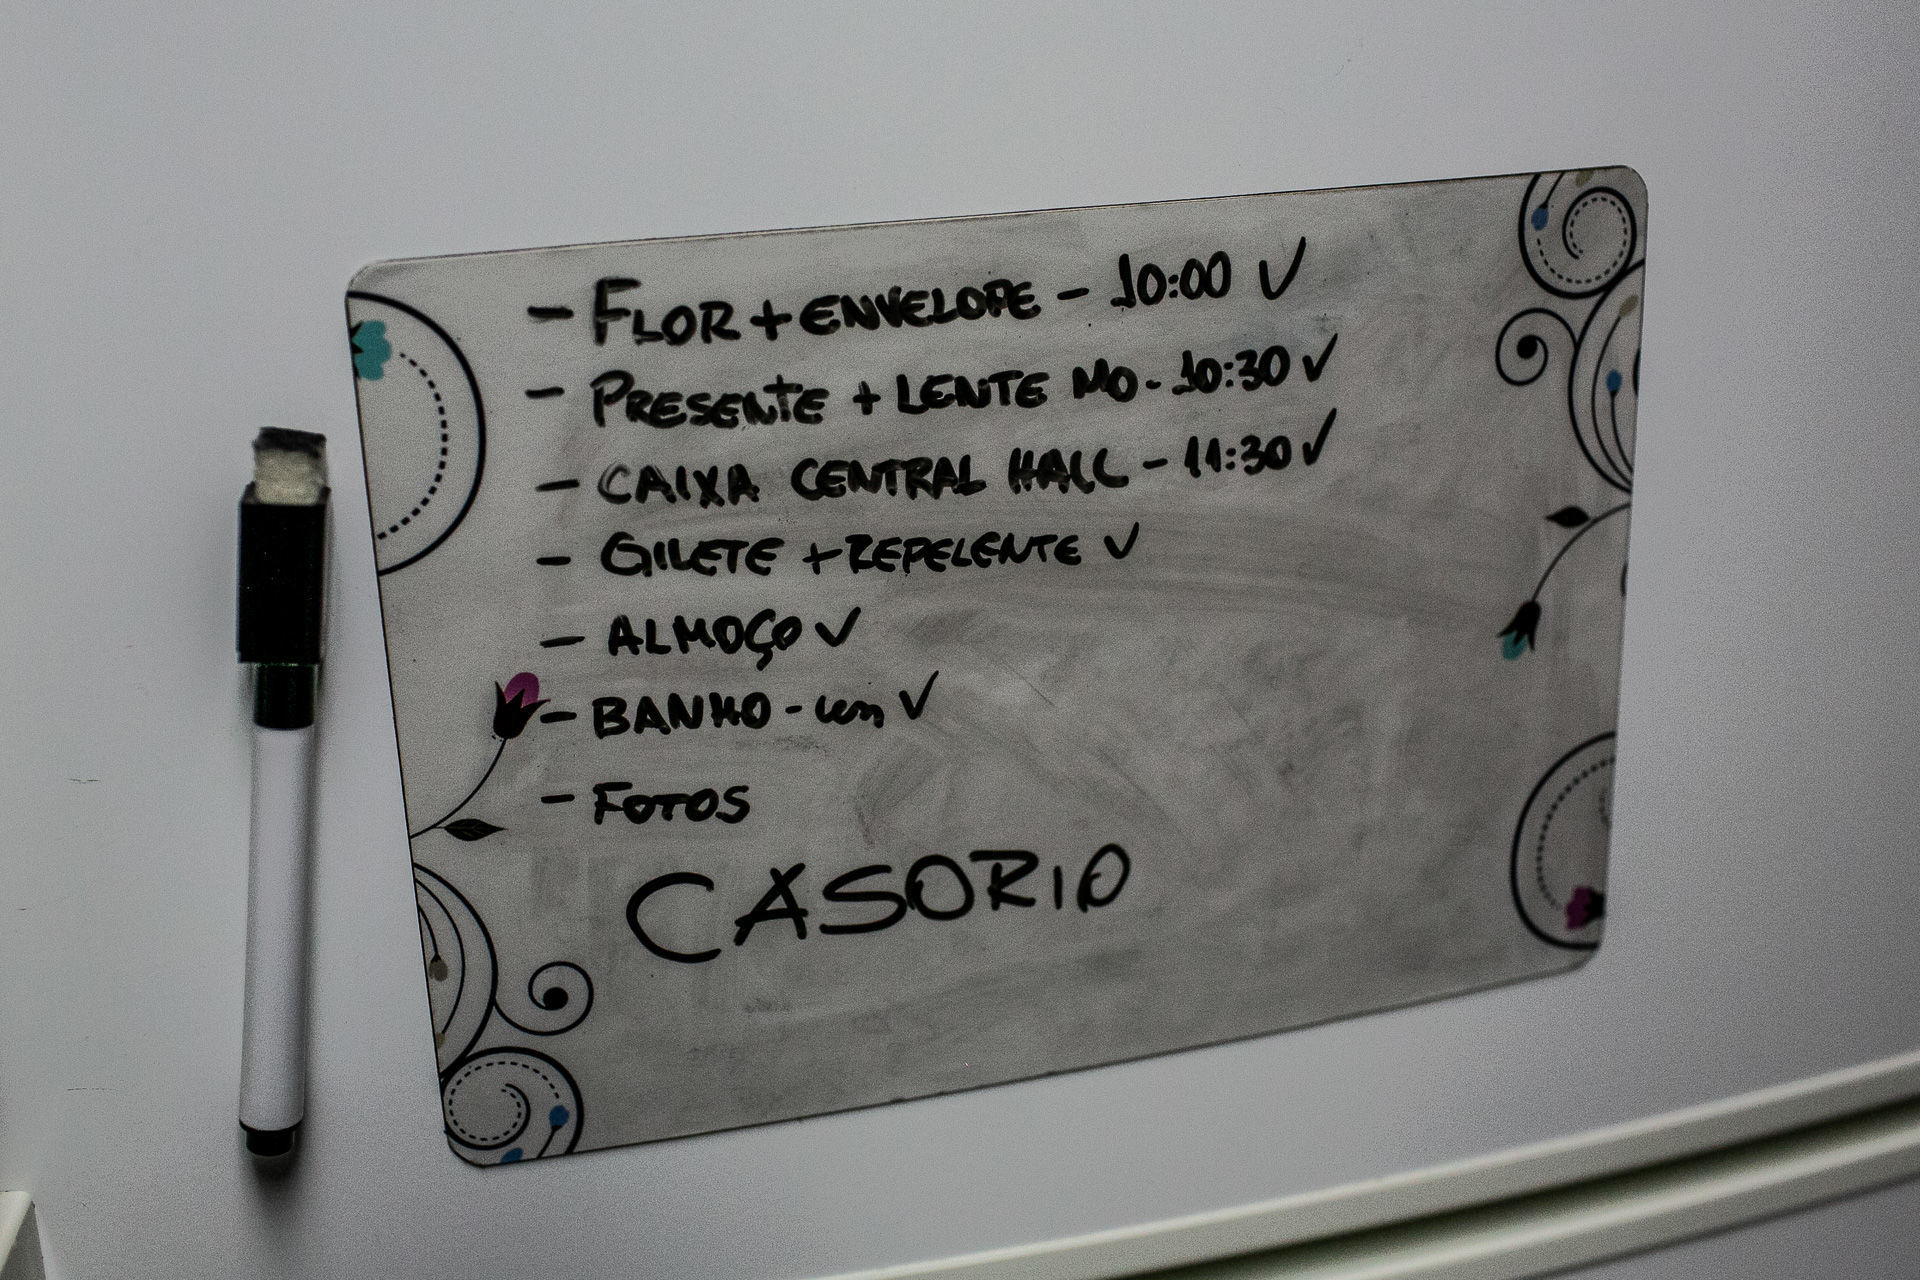 - FLOR + ENVELOPE - 10:00 ✓
- PRESENTE + LENTE MO - 10:30 ✓
- CAIXA CENTRAL HALL - 11:30 ✓
- GILETE + REPELENTE ✓
- ALMOÇO ✓
- BANHO - ✓
- FOTOS
CASORIO